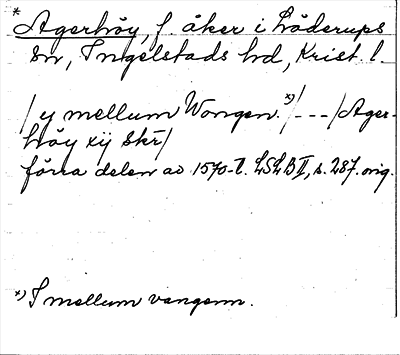 * Agerhöy, f. åker i Löderups
sn, Ingelstads hd, Krist. l.
/ y mellum Wongen. x)/---/Ager-
höy xij Skr/
förra delen av 1570-t. LSLB II, s. 287. orig.
x) I mellum vangenn.